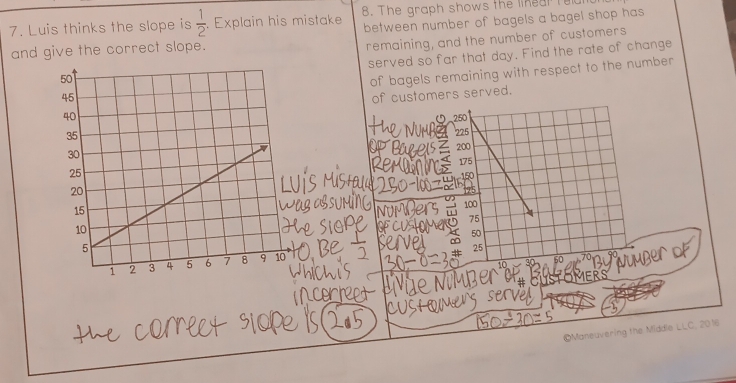 7. Luis thinks the slope is 1/2. Explain his mistake
and give the correct slope.
50
45
40
35
30
25
20
15
10
5
1 2 3 4 5 6 7 8 9 10
LUiS Mistake
was assuming
the slope
to Be 1/2
which is
incorrect
the correct slope is 2.5
8. The graph shows the linear
between number of bagels a bagel shop has
remaining, and the number of customers
served so far that day. Find the rate of change
of bagels remaining with respect to the number
of customers served.
the Number
of Bagels
Remaining
250-100=150
Numbers
of customers
served
30-0=30
# BAGELS REMAINING
250
225
200
175
150
125
100
75
50
25
10 30 50 70 90
# CUSTOMERS
divide Number of Bagel By Number of
customers served
150÷30=5
5
©Maneuvering the Middle LLC, 2016